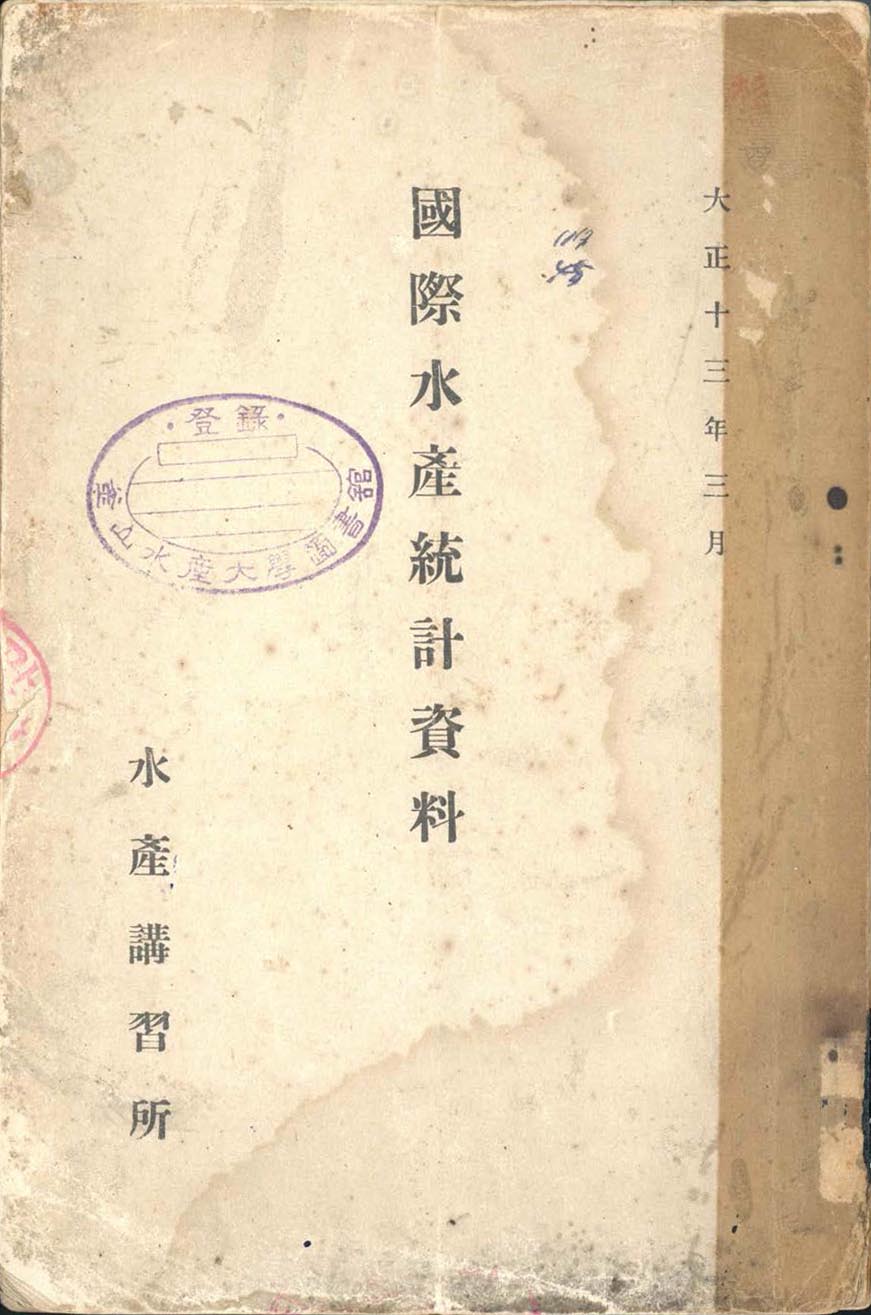 大正十三年三月
國際水產統計資料
水產講習所
登錄
釜山水產大學圖書館